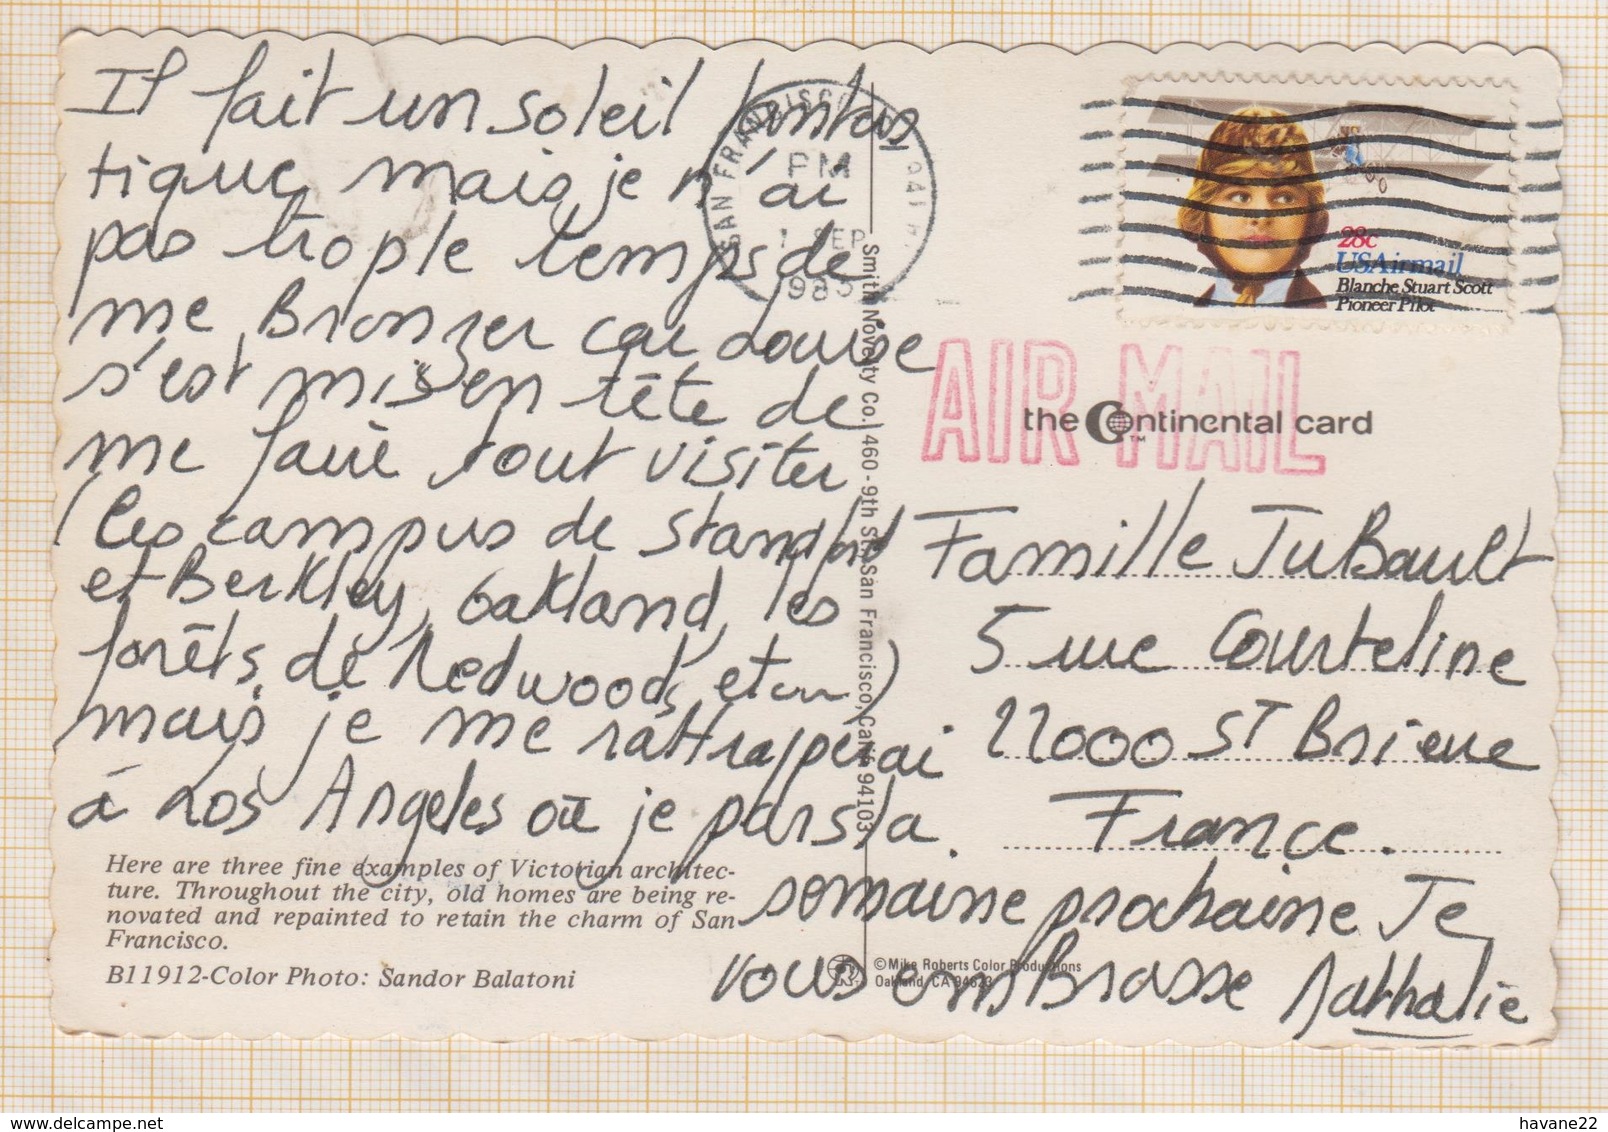 Il fait un soleil fantas
tique mais je n'ai
pas trop le temps de
me Bronzer car Louise
s'est mis en tête de
me faire tout visiter
(les campus de Standford
et Berkley, Oakland, les
forêts de Redwoods, etc)
mais je me rattraperai
à Los Angeles où je pars la
semaine prochaine Je
vous emBrasse Nathalie
Famille JuBault
5 rue Courteline
22000 ST Brieuc
France.
SAN FRANCISCO
PM
1 SEP
28c
USAirmail
Blanche Stuart Scott
Pioneer Pilot
AIR MAIL
the Continental card
TM
Smith Novelty Co. 460 - 9th St. San Francisco, Calif. 94103
Here are three fine examples of Victorian architec-
ture. Throughout the city, old homes are being re-
novated and repainted to retain the charm of San
Francisco.
B11912-Color Photo: Sandor Balatoni
©Mike Roberts Color Productions
Oakland, CA 94623
havane22